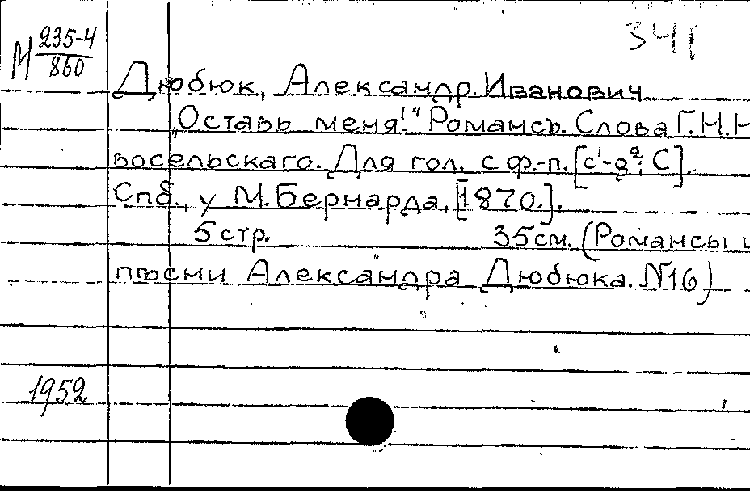 341
М 235-4
860
Дюбюк, Александр Иванович
„Оставь меня!“ Романсъ. Слова Г. Н. Н
восельскаго. Для гол. с ф.-п. [c¹-g²; C].
Спб., у М. Бернарда, [1870.].
5 стр. 35 см. (Романсы и
пѣсни Александра Дюбюка. №16)
1952